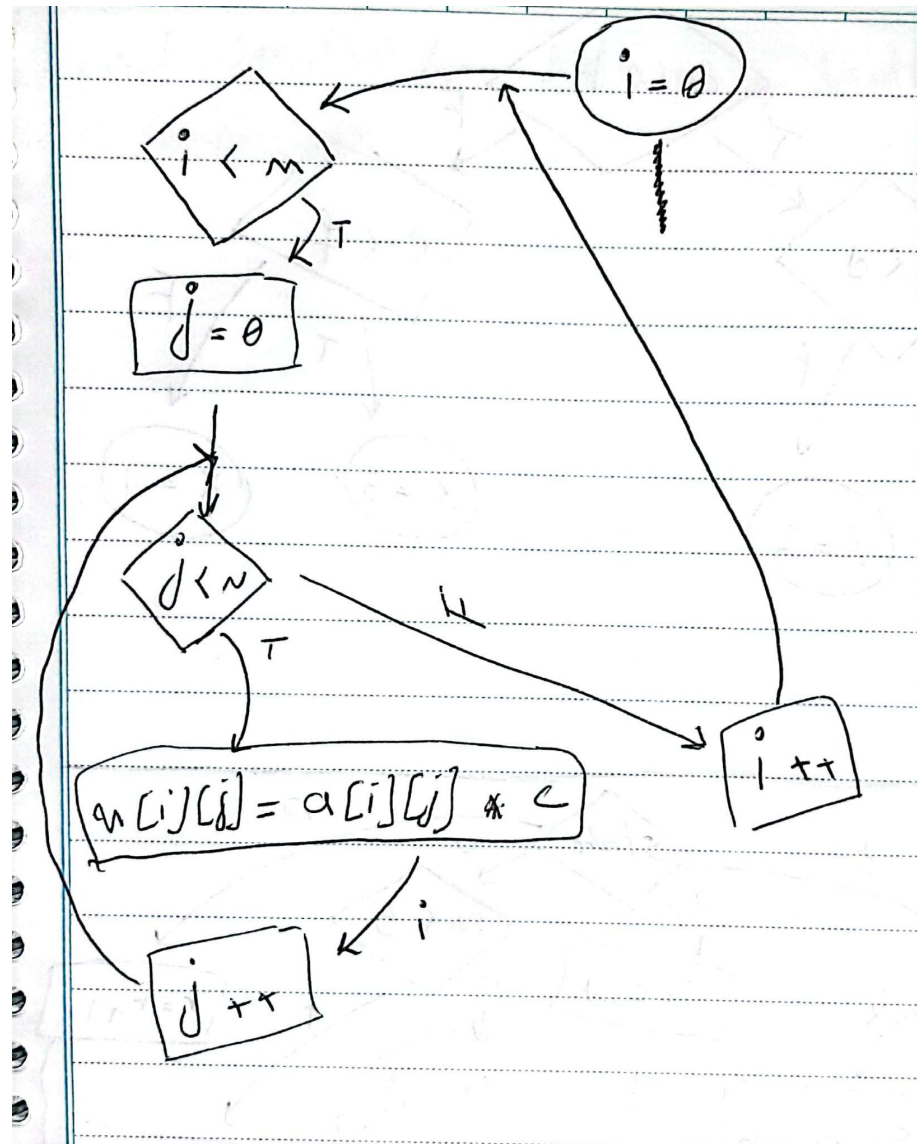 i = 0
i < m
T
j = 0
j < n
T
a[i][j] = a[i][j] * c
i ++
i
j ++